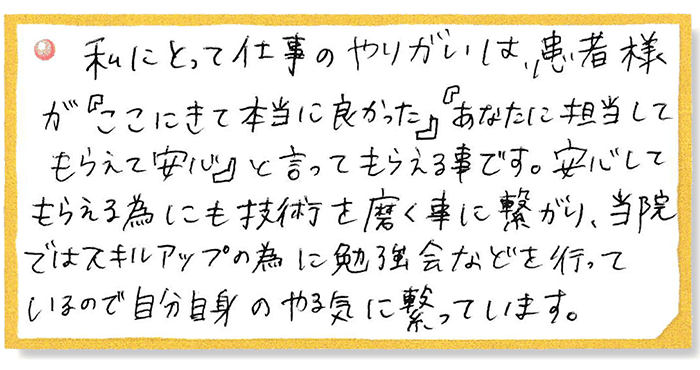 私にとって仕事のやりがいは、患者様
が『ここにきて本当に良かった』『あなたに担当して
もらえて安心』と言ってもらえる事です。安心して
もらえる為にも技術を磨く事に繋がり、当院
ではスキルアップの為に勉強会などを行って
いるので自分自身のやる気に繋っています。